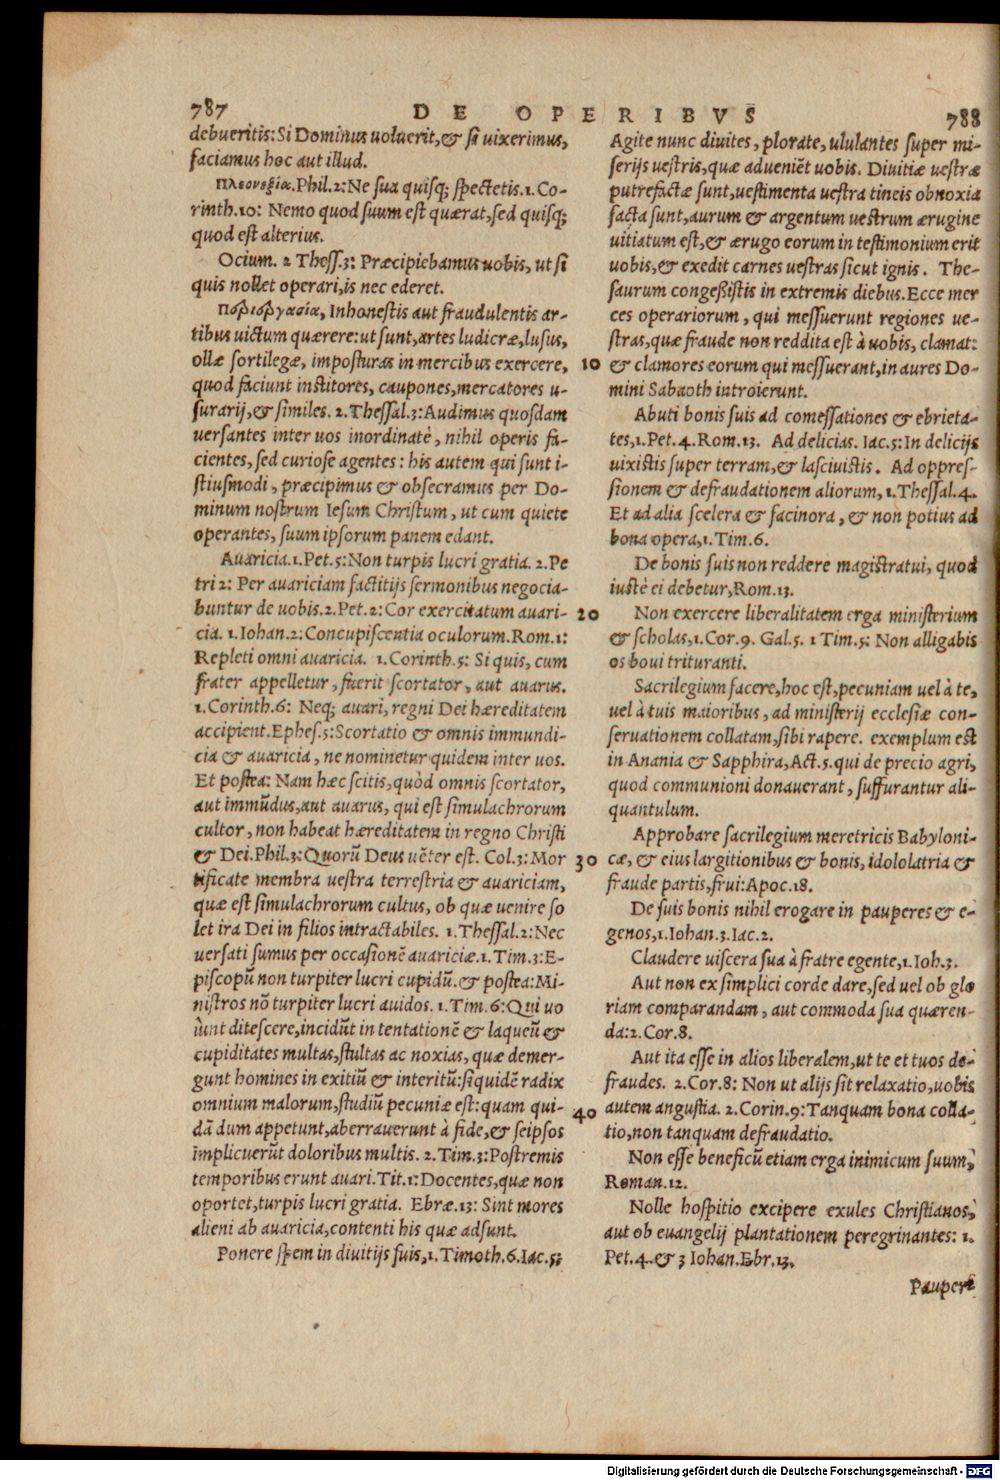 787 DE OPERIBVS 788
debueritis: Si Dominus uoluerit, & si uixerimus,
faciamus hoc aut illud.
Πλεονεξία. Phil. 2: Ne sua quisq; spectetis. 1. Co-
rinth. 10: Nemo quod suum est quærat, sed quisq;
quod est alterius.
Ocium. 2 Thess. 3: Præcipiebamus uobis, ut si
quis nollet operari, is nec ederet.
Περιεργασία, Inhonestis aut fraudulentis ar-
tibus uictum quærere: ut sunt, artes ludicræ, lusus,
ollæ sortilegæ, imposturas in mercibus exercere,
quod faciunt institores, caupones, mercatores u-
surarij, & similes. 2. Thessal. 3: Audimus quosdam
uersantes inter uos inordinatè, nihil operis fa-
cientes, sed curiose agentes: his autem qui sunt i-
stiusmodi, præcipimus & obsecramus per Do-
minum nostrum Iesum Christum, ut cum quiete
operantes, suum ipsorum panem edant.
Auaricia. 1. Pet. 5: Non turpis lucri gratia. 2. Pe
tri 2: Per auariciam factitijs sermonibus negocia-
buntur de uobis. 2. Pet. 2: Cor exercitatum auari-
cia. 1. Iohan. 2: Concupiscentia oculorum. Rom. 1:
Repleti omni auaricia. 1. Corinth. 5: Si quis, cum
frater appelletur, fuerit scortator, aut auarus.
1. Corinth. 6: Neq; auari, regni Dei hæreditatem
accipient. Ephes. 5: Scortatio & omnis immundi-
cia & auaricia, ne nominetur quidem inter uos.
Et postea: Nam hæc scitis, quòd omnis scortator,
aut immūdus, aut auarus, qui est simulachrorum
cultor, non habeat hæreditatem in regno Christi
& Dei. Phil. 3: Quorū Deus uēter est. Col. 3: Mor
tificate membra uestra terrestria & auariciam,
quæ est simulachrorum cultus, ob quæ uenire so
let ira Dei in filios intractabiles. 1. Thessal. 2: Nec
uersati sumus per occasionē auariciæ. 1. Tim. 3: E-
piscopū non turpiter lucri cupidū. & postea: Mi-
nistros nō turpiter lucri auidos. 1. Tim. 6: Qui uo
lunt ditescere, incidūt in tentationē & laqueū &
cupiditates multas, stultas ac noxias, quæ demer-
gunt homines in exitiū & interitū: siquidē radix
omnium malorum, studiū pecuniæ est: quam qui-
dā dum appetunt, aberrauerunt à fide, & seipsos
implicuerūt doloribus multis. 2. Tim. 3: Postremis
temporibus erunt auari. Tit. 1: Docentes, quæ non
oportet, turpis lucri gratia. Ebræ. 13: Sint mores
alieni ab auaricia, contenti his quæ adsunt.
Ponere spem in diuitijs suis, 1. Timoth. 6. Iac. 5:
Agite nunc diuites, plorate, ululantes super mi-
serijs uestris, quæ adueniēt uobis. Diuitiæ uestræ
putrefactæ sunt, uestimenta uestra tineis obnoxia
facta sunt, aurum & argentum uestrum ærugine
uitiatum est, & ærugo eorum in testimonium erit
uobis, & exedit carnes uestras sicut ignis. The-
saurum congeßistis in extremis diebus. Ecce mer
ces operariorum, qui messuerunt regiones ue-
stras, quæ fraude non reddita est à uobis, clamat:
10 & clamores eorum qui messuerant, in aures Do-
mini Sabaoth introierunt.
Abuti bonis suis ad comessationes & ebrieta-
tes, 1. Pet. 4. Rom. 13. Ad delicias. Iac. 5: In delicijs
uixistis super terram, & lasciuistis. Ad oppres-
sionem & defraudationem aliorum, 1. Thessal. 4.
Et ad alia scelera & facinora, & non potius ad
bona opera, 1. Tim. 6.
De bonis suis non reddere magistratui, quod
iustè ei debetur, Rom. 13.
20 Non exercere liberalitatem erga ministerium
& scholas, 1. Cor. 9. Gal. 5. 1 Tim. 5: Non alligabis
os boui trituranti.
Sacrilegium facere, hoc est, pecuniam uel à te,
uel à tuis maioribus, ad ministerij ecclesiæ con-
seruationem collatam, sibi rapere. exemplum est
in Anania & Sapphira, Act. 5. qui de precio agri,
quod communioni donauerant, suffurantur ali-
quantulum.
Approbare sacrilegium meretricis Babyloni-
30 cæ, & eius largitionibus & bonis, idololatria &
fraude partis, frui: Apoc. 18.
De suis bonis nihil erogare in pauperes & e-
genos, 1. Iohan. 3. Iac. 2.
Claudere uiscera sua à fratre egente, 1. Ioh. 3.
Aut non ex simplici corde dare, sed uel ob glo
riam comparandam, aut commoda sua quæren-
da: 2. Cor. 8.
Aut ita esse in alios liberalem, ut te et tuos de-
fraudes. 2. Cor. 8: Non ut alijs sit relaxatio, uobis
40 autem angustia. 2. Corin. 9: Tanquam bona colla-
tio, non tanquam defraudatio.
Non esse beneficū etiam erga inimicum suum,
Roman. 12.
Nolle hospitio excipere exules Christianos,
aut ob euangelij plantationem peregrinantes: 1.
Pet. 4. & 3 Iohan. Ebr. 13.
Pauperi
Digitalisierung gefördert durch die Deutsche Forschungsgemeinschaft - DFG